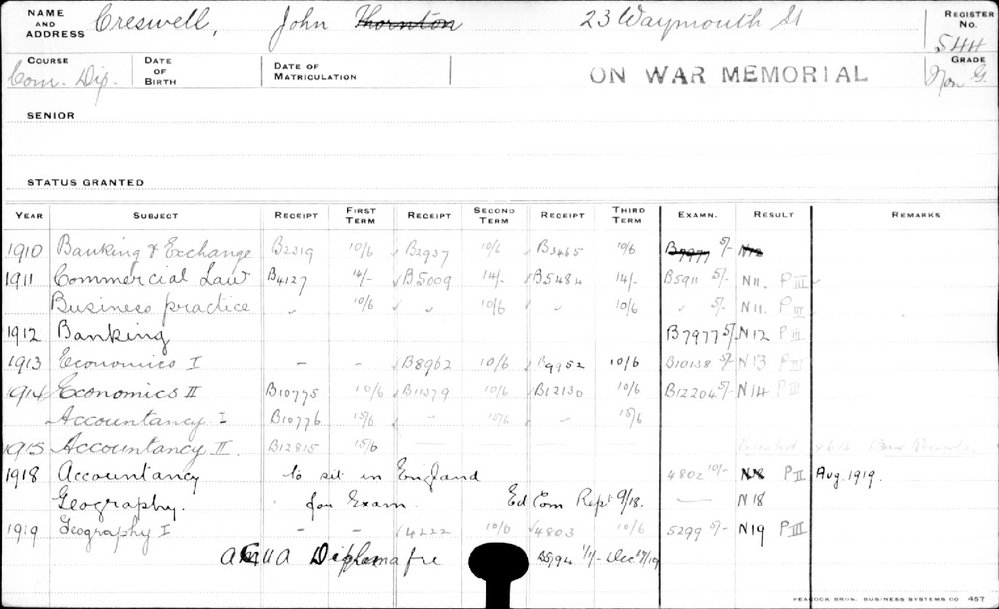 NAME AND ADDRESS Creswell, John Thornton 23 Waymouth St REGISTER No. 544
COURSE Com. Dip. DATE OF BIRTH DATE OF MATRICULATION ON WAR MEMORIAL GRADE Non G
SENIOR
STATUS GRANTED
YEAR SUBJECT RECEIPT FIRST TERM RECEIPT SECOND TERM RECEIPT THIRD TERM EXAMN. RESULT REMARKS
1910 Banking & Exchange B2319 10/6 B2937 10/6 B3465 10/6 B7977 5/- N12
1911 Commercial Law B4127 14/- B5009 14/- B5484 14/- B5911 5/- N11. P III
Business practice " 10/6 " 10/6 " 10/6 " 5/- N11. P III
1912 Banking B7977 5/- N12 P III
1913 Economics I - - B8962 10/6 B9952 10/6 B10138 5/- N13 P III
1914 Economics II B10775 10/6 B11379 10/6 B12130 10/6 B12204 5/- N14 P II
Accountancy I B10776 15/6 " 15/6 " 15/6
1915 Accountancy II. B12815 15/6
1918 Accountancy to sit in England 4802 10/- N8 P II Aug. 1919.
Geography. for Exam. Ed Com Rept 9/18. — N18
1919 Geography I - - 4222 10/6 4803 10/6 5299 5/- N19 P III
AUA Diploma fee B5794 1/1/- Dec 17/19
PEACOCK BROS. BUSINESS SYSTEMS CO 457